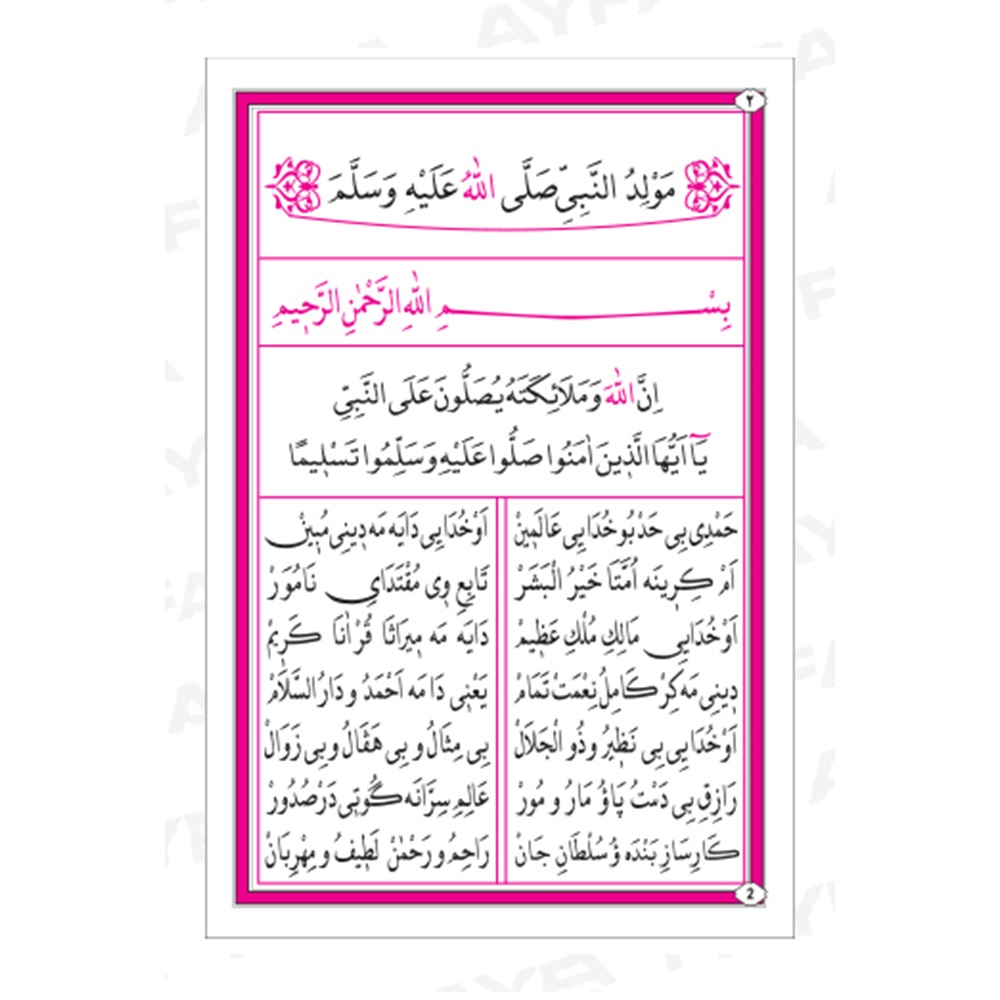 ٢
مَوْلِدُ النَّبِىِّ صَلَّى اللّٰهُ عَلَيْهِ وَسَلَّمَ
بِسْمِ اللّٰهِ الرَّحْمٰنِ الرَّحِيمِ
اِنَّ اللّٰهَ وَمَلَائِكَتَهُ يُصَلُّونَ عَلَى النَّبِىِّ
يَآ اَيُّهَا الَّذِينَ اٰمَنُوا صَلُّوا عَلَيْهِ وَسَلِّمُوا تَسْلِيمًا
حَمْدِى بِى حَدْ بُو خُدَايِى عَالَمِينْ اَوْ خُدَايِى دَايَه مَه دِينِى مُبِينْ
اَمْ كِرِينَه اُمَّتَا خَيْرُ الْبَشَرْ تَابِعِ وِى مُقْتَدَاىِ نَامُوَرْ
اَوْ خُدَايِى مَالِكِ مُلْكِ عَظِيمْ دَايَه مَه مِيرَاثَا قُرْاٰنَا كَرِيمْ
دِينِى مَه كِرْ كَامِلُ نِعْمَتْ تَمَامْ يَعْنِى دَا مَه اَحْمَدُ و دَارُ السَّلَامْ
اَوْ خُدَايِى بِى نَظِيرُ و ذُو الْجَلَالْ بِى مِثَالُ و بِى هَڤَالُ و بِى زَوَالْ
رَازِقِ بِى دَسْتُ پَاؤُ مَارُ و مُورْ عَالِمِ سِرَّانَه گُوتِى دَرْ صُدُورْ
كَارِسَازِ بَنْدَه ؤُ سُلْطَانِ جَانْ رَاحِمُ و رَحْمٰنْ لَطِيفُ و مِهْرِبَانْ
2